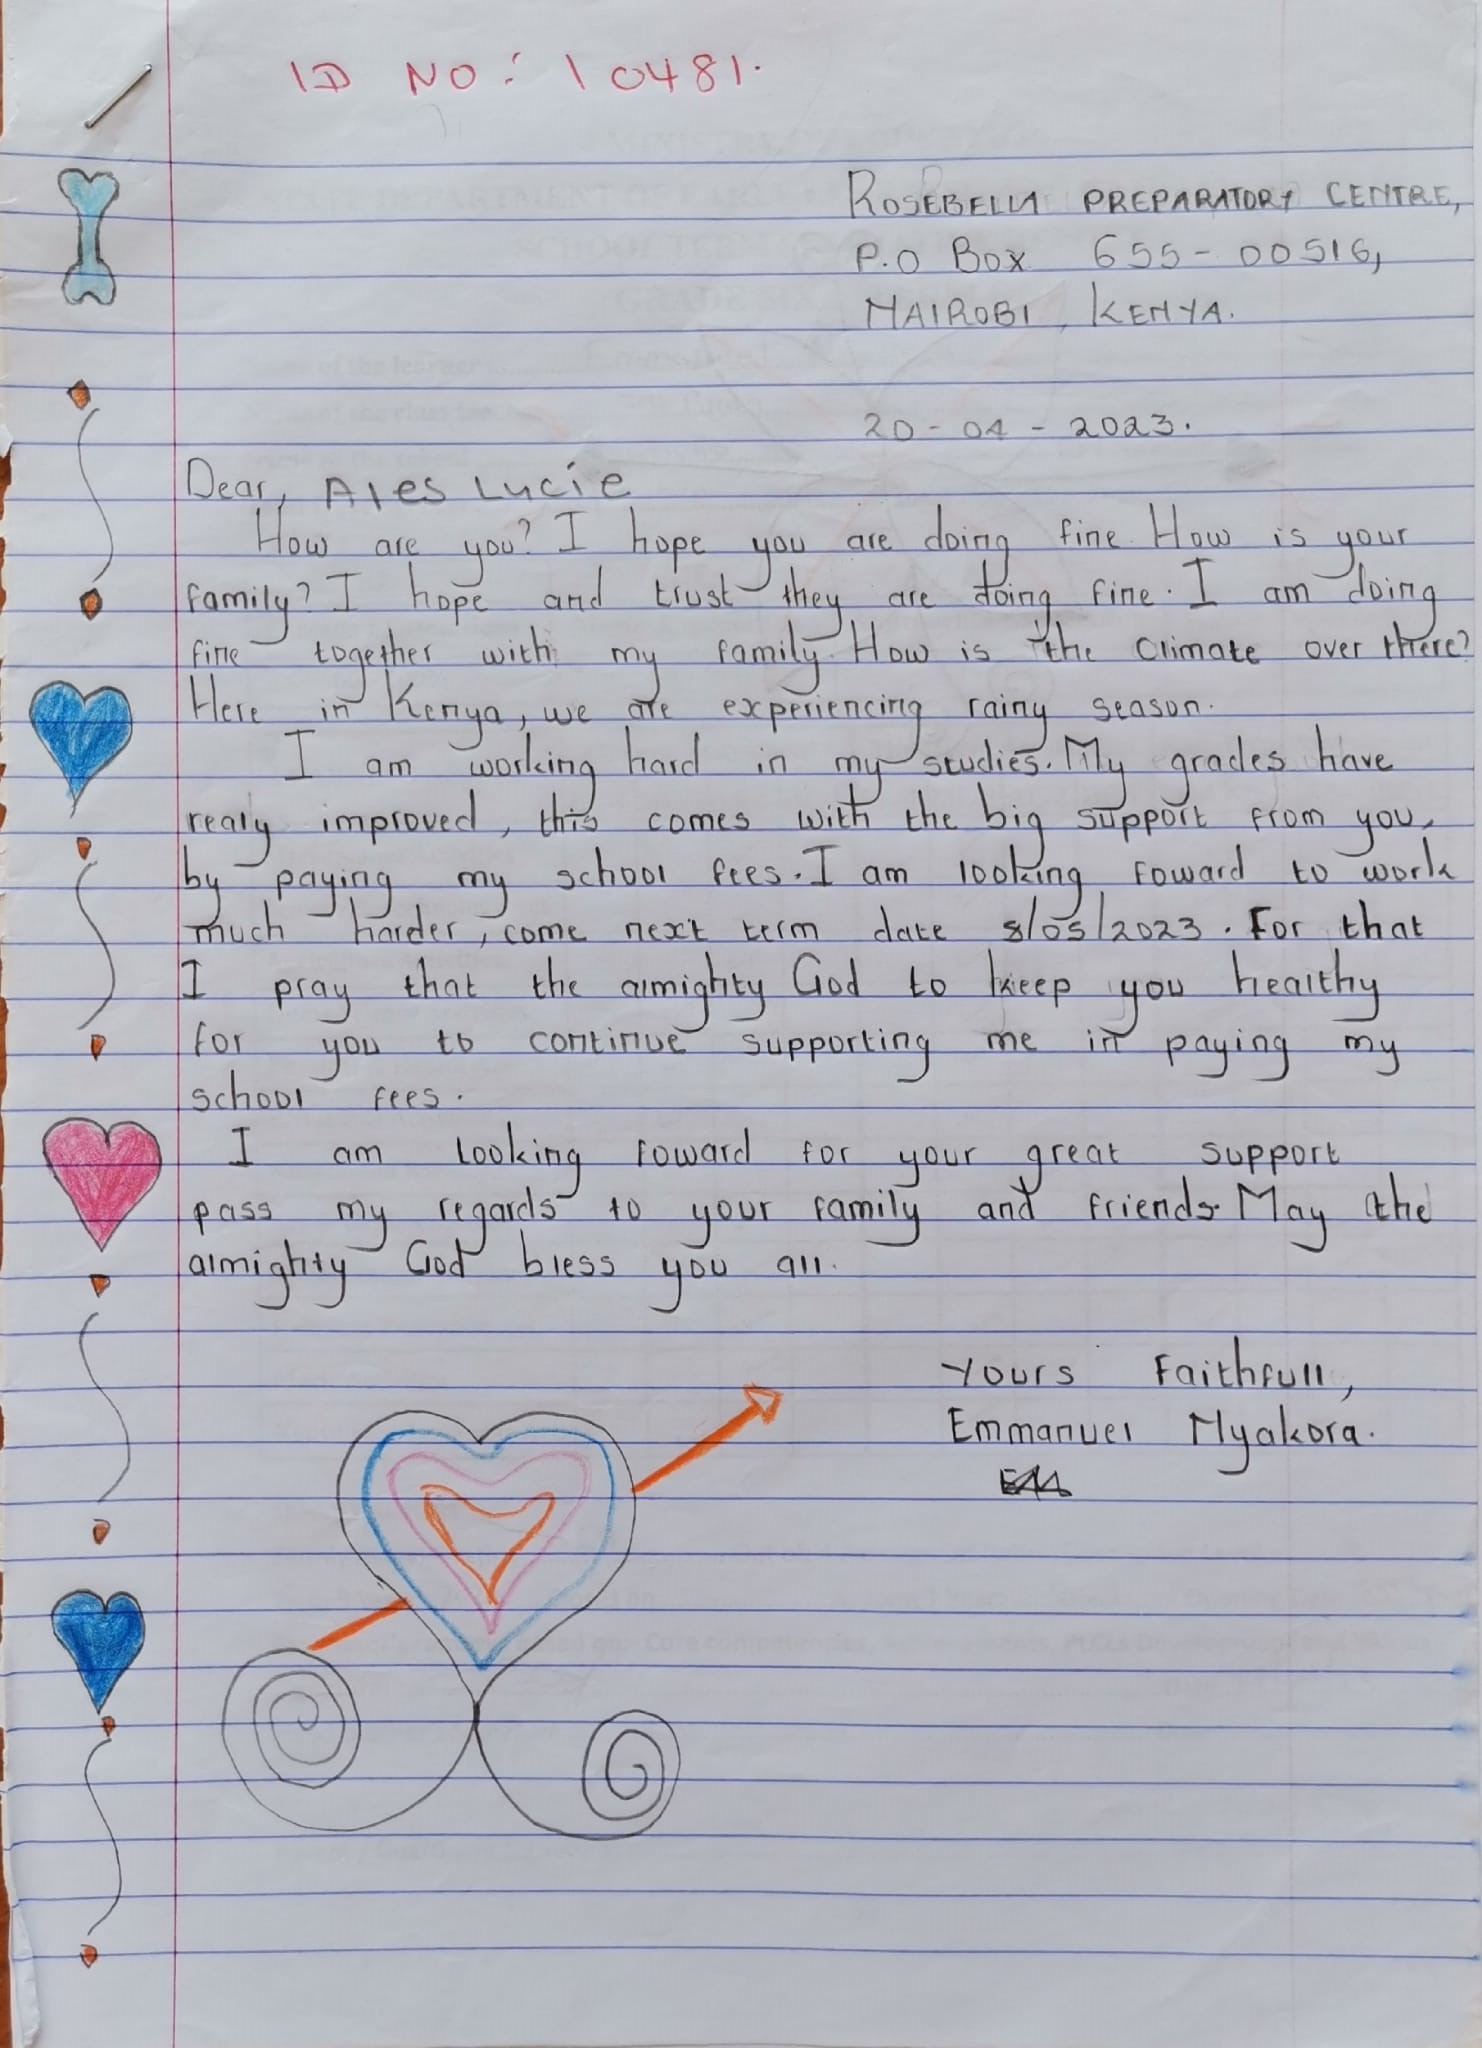 ID NO: 10481.
ROSEBELLA PREPARATORY CENTRE,
P.O BOX 655-00516,
NAIROBI, KENYA.
20-04-2023.
Dear, Ales Lucie
How are you? I hope you are doing fine. How is your
family? I hope and trust they are doing fine. I am doing
fine together with my family. How is the climate over there?
Here in Kenya, we are experiencing rainy season.
I am working hard in my studies. My grades have
realy improved, this comes with the big support from you,
by paying my school fees. I am looking foward to work
much harder, come next term date 8/05/2023. For that
I pray that the almighty God to keep you healthy
for you to continue supporting me in paying my
school fees.
I am looking foward for your great support
pass my regards to your family and friends. May the
almighty God bless you all.
Yours Faithfull,
Emmanuel Nyakora.